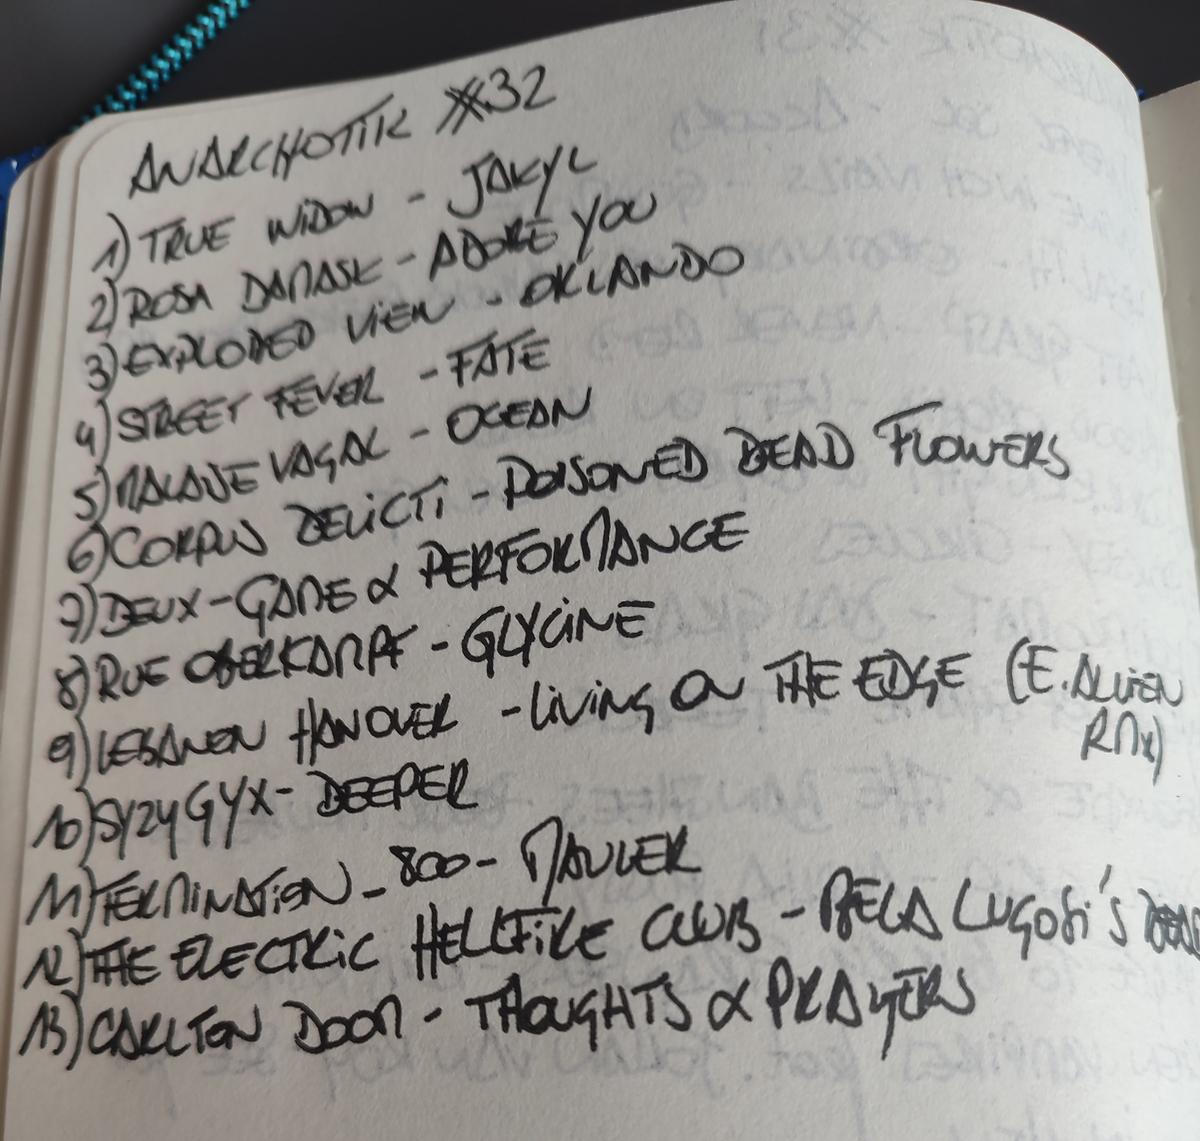 ANARCHOTIK #32
1) TRUE WIDOW - JAKYL
2) ROSA DAMASK - ADORE YOU
3) EXPLODED VIEW - ORLANDO
4) STREET FEVER - FATE
5) MALAISE VAGAL - OCEAN
6) CORPUS DELICTI - POISONED DEAD FLOWERS
7) DEUX - GAME & PERFORMANCE
8) RUE OBERKAMPF - GLYCINE
9) LEBANEN HANOVER - LIVING ON THE EDGE (E. ALLIEN
RMX)
10) SYZYGYX - DEEPER
11) TERMINATION_800 - MAULER
12) THE ELECTRIC HELLFIRE CLUB - BELA LUGOSI'S DEAD
13) CARLTON DOOM - THOUGHTS & PRAYERS